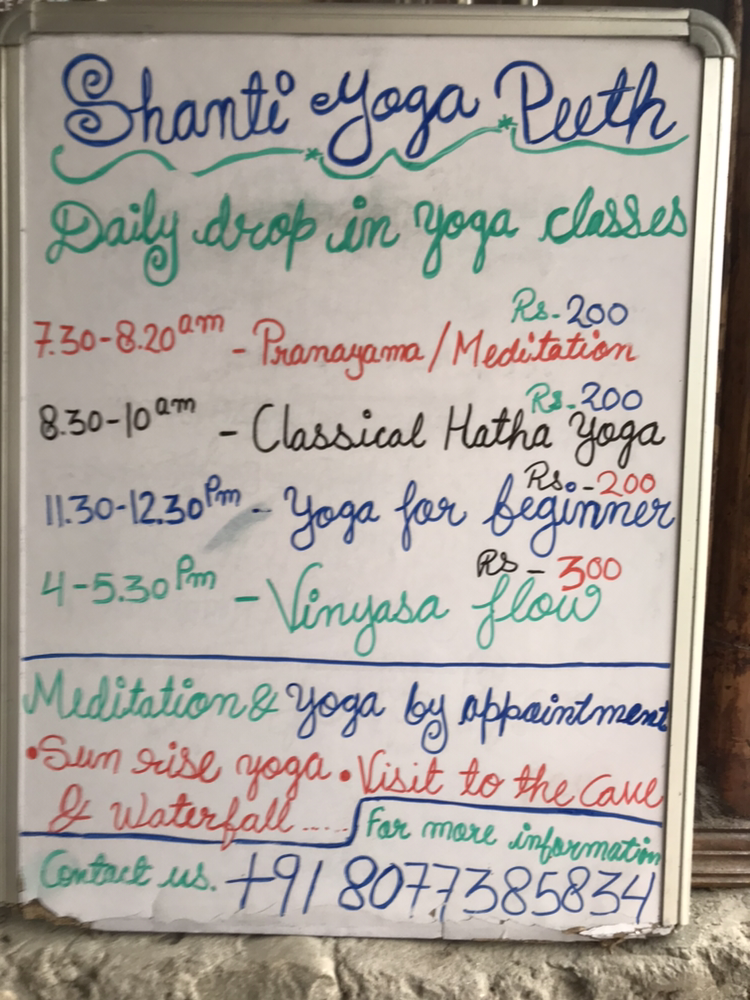 Shanti Yoga Peeth
Daily drop in yoga classes
Rs-200
7.30-8.20am - Pranayama/Meditation
Rs-200
8.30-10am - Classical Hatha Yoga
Rs.-200
11.30-12.30Pm - Yoga for beginner
Rs-300
4-5.30Pm - Vinyasa flow
Meditation & Yoga by appointment
•Sun rise yoga •Visit to the Cave
& Waterfall.....
For more information
Contact us. +91 8077385834